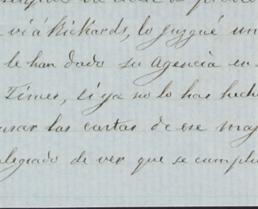 vi á Rickards, lo juzgué un
le han dado su agencia en
Times, si ya no lo has hech
usar las cartas de ese maj
alegrado de ver que se cumpli